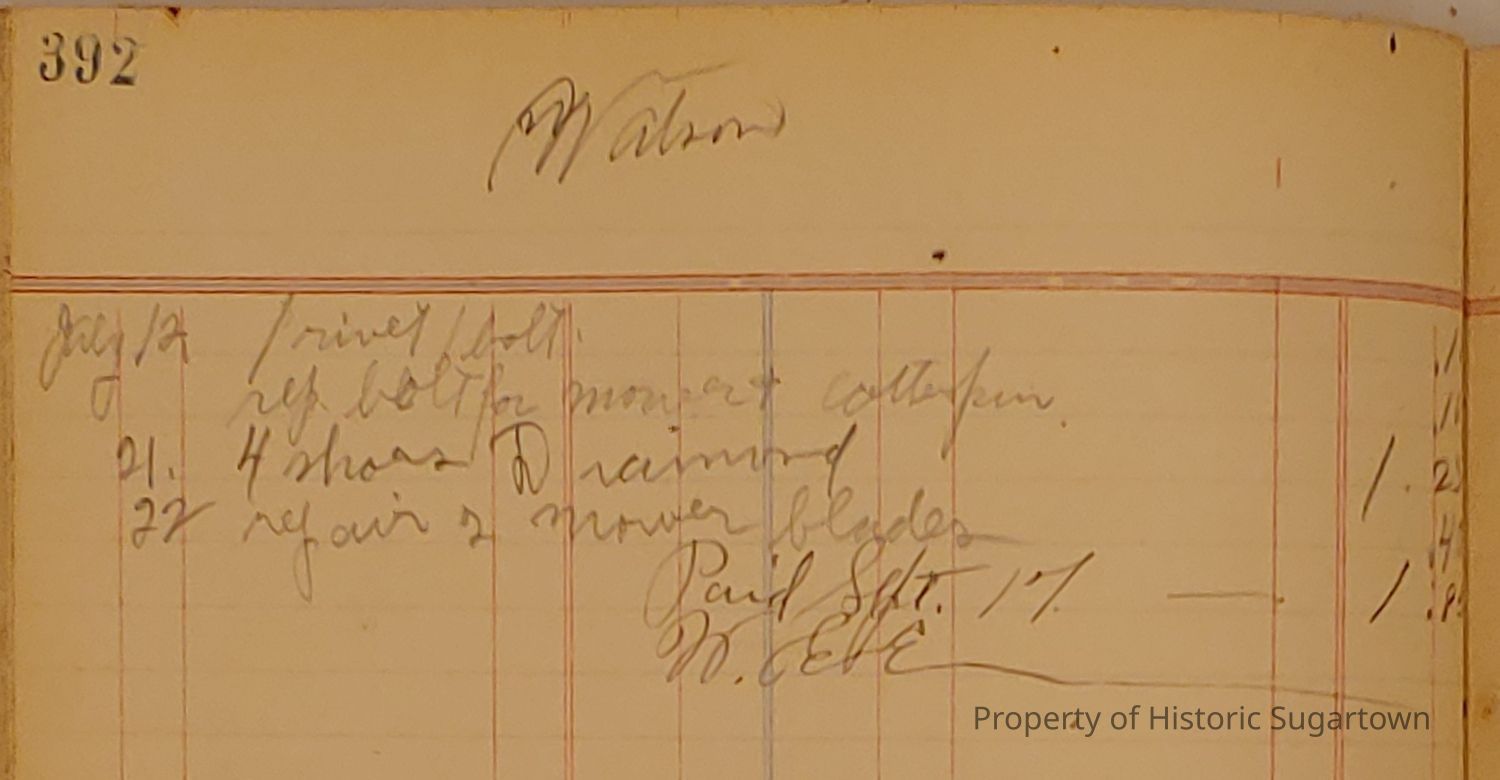 392
Watson
July 12 1 rivet 1 bolt. .1
rep. bolt for mower + cotterpin. .1
21. 4 shoes Diamond 1.2
22 repair 2 mower blades .4
Paid Sept. 17. — 1.8
W. E
Property of Historic Sugartown